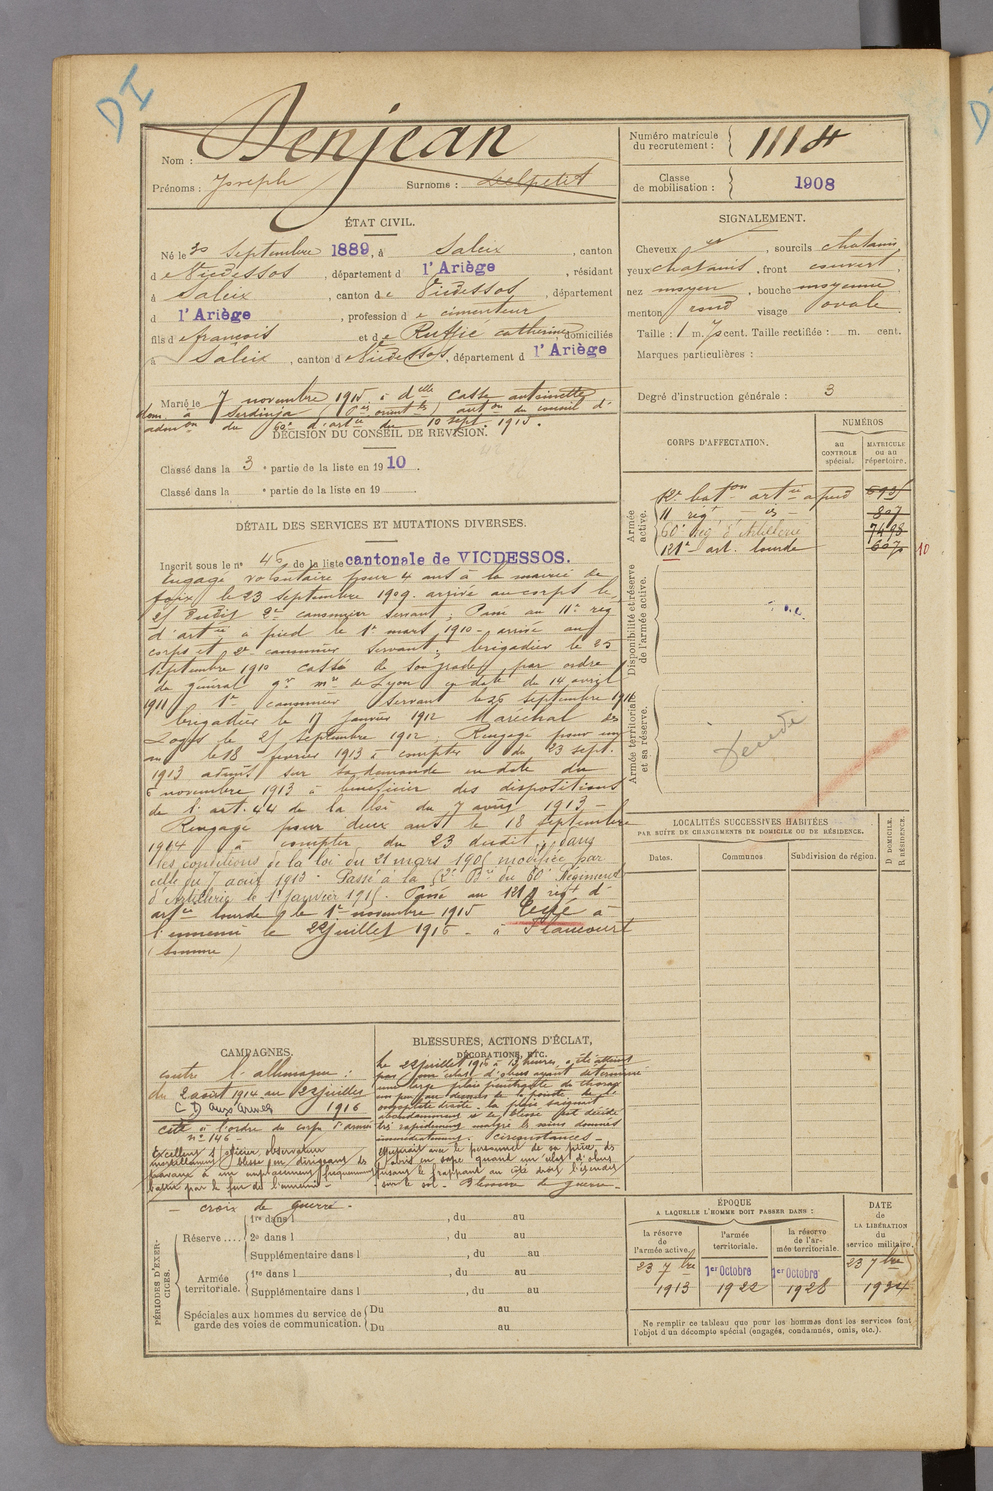 DI
Nom : Denjean
Prénoms : Joseph Surnoms : Delpetit
Numéro matricule du recrutement : 1114
Classe de mobilisation : 1908
ÉTAT CIVIL.
Né le 20 septembre 1889, à Saleix, canton
de Vicdessos, département d l'Ariège, résidant
à Saleix, canton de Vicdessos, département
d l'Ariège, profession de cimenteur
fils de françois et de Ruffié catherine domiciliés
à Saleix, canton de Vicdessos, département d l'Ariège
Marié le 7 novembre 1915, à delle Casse antoinette
dom. à Serdinja (Pes orientles) auton du conseil d'
admon du 60e d'artie du 10 sept. 1915.
SIGNALEMENT.
Cheveux, sourcils chatains,
yeux chatains, front couvert,
nez moyen, bouche moyenne,
menton rond visage ovale
Taille : 1 m. 70 cent. Taille rectifiée : m. cent.
Marques particulières :
Degré d'instruction générale : 3
DÉCISION DU CONSEIL DE RÉVISION.
Classé dans la 3e partie de la liste en 1910.
Classé dans la e partie de la liste en 19
CORPS D'AFFECTATION.
NUMÉROS
au CONTROLE spécial.
MATRICULE ou au répertoire.
Armée active.
12e baton artie à pied
11 régt — d° — 807
60e Rég d'Artillerie 7493
121e art. lourde 10
Disponibilité et réserve de l'armée active.
Armée territoriale et sa réserve.
Décédé
DÉTAIL DES SERVICES ET MUTATIONS DIVERSES.
Inscrit sous le n° 46 de la liste cantonale de VICDESSOS.
Engagé volontaire pour 4 ans à la mairie de
foix, le 23 septembre 1909. arrivé au corps le
25 dudit 2e canonnier servant; Passé au 11e rég
d'artie à pied le 1er mars 1910 - arrivé au
corps et 2e canonnier servant; brigadier le 25
septembre 1910 cassé de son grade, par ordre
du général gr mre de Lyon en date du 14 avril
1911, 1er canonnier servant le 26 septembre 1911
brigadier le 17 janvier 1912 Maréchal des
Logis le 25 septembre 1912; Rengagé pour un
an le 18 fevrier 1913 à compter du 23 sept.
1913 admis sur sa demande en date du
6 novembre 1913 à bénéficier des dispositions
de l'art. 44 de la loi du 7 août 1913 -
Rengagé pour deux ans le 18 septembre
1914 à compter du 23 dudit, dans
les conditions de la loi du 21 mars 1905 modifiée par
celle du 7 août 1913 - Passé à la 62e Bie du 60e Régiment
d'Artillerie le 1er Janvier 1915. Passé au 121e régt d'
artie lourde le 1er novembre 1915 Tué à
l'ennemi le 22 juillet 1916 - à Flaucourt
(Somme)
LOCALITÉS SUCCESSIVES HABITÉES
PAR SUITE DE CHANGEMENTS DE DOMICILE OU DE RÉSIDENCE.
Dates. Communes Subdivision de région. D. DOMICILE. R. RÉSIDENCE.
CAMPAGNES.
contre l'allemagne :
du 2 août 1914 au 22 juillet
1916
C D aux armées
cité à l'ordre du corps d'armée
n° 146 -
Excellent s officier, observateur
mortellement blessé en dirigeant des
travaux à un emplacement fréquemment
battu par le feu de l'ennemi -
- croix de guerre -
BLESSURES, ACTIONS D'ÉCLAT,
DÉCORATIONS, ETC.
Le 22 juillet 1916 à 13 heures, a été atteint
par un éclat d'obus ayant déterminé
une large plaie pénétrante du thorax
un peu au dessous de la pointe de l'
omoplate droite. la plaie saignait
abondamment et le blessé est décédé
très rapidement malgré les soins donnés
immédiatement. Circonstances -
abri en sape quand un éclat d'obus
fusant le frappant au côté droit l'étendit
sur le sol. - Blessure de guerre -
PÉRIODES D'EXERCICES.
Réserve .... 1re dans l , du au
2e dans l , du au
Supplémentaire dans l , du au
Armée territoriale. 1re dans l , du au
Supplémentaire dans l , du au
Spéciales aux hommes du service de garde des voies de communication. Du au
Du au
ÉPOQUE
A LAQUELLE L'HOMME DOIT PASSER DANS :
la réserve de l'armée active. l'armée territoriale. la réserve de l'armée territoriale.
DATE de LA LIBÉRATION du service militaire.
23 7bre 1913 1er Octobre 1922 1er Octobre 1928 23 7bre 1934
Ne remplir ce tableau que pour les hommes dont les services font
l'objet d'un décompte spécial (engagés, condamnés, omis, etc.).